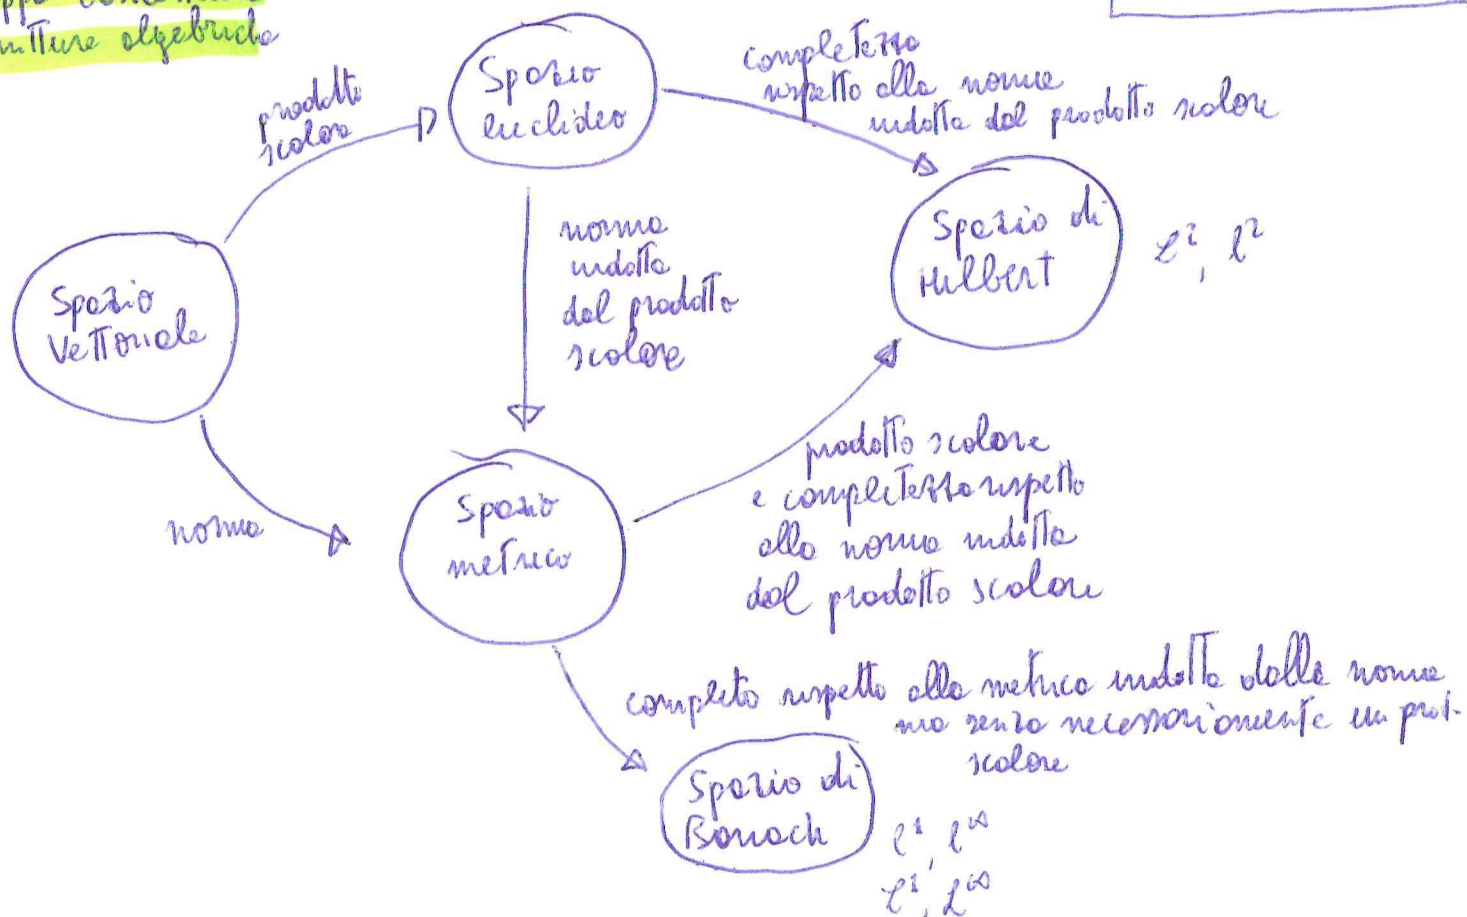 strutture algebriche
prodotto
scalare
Spazio
euclideo
completezza
rispetto alla norma
indotta dal prodotto scalare
Spazio
Vettoriale
norma
indotta
dal prodotto
scalare
Spazio di
Hilbert
L², l²
norma
Spazio
metrico
prodotto scalare
e completezza rispetto
alla norma indotta
dal prodotto scalare
completo rispetto alla metrica indotta dalla norma
ma senza necessariamente un prod.
scalare
Spazio di
Banach
l¹, l∞
L¹, L∞